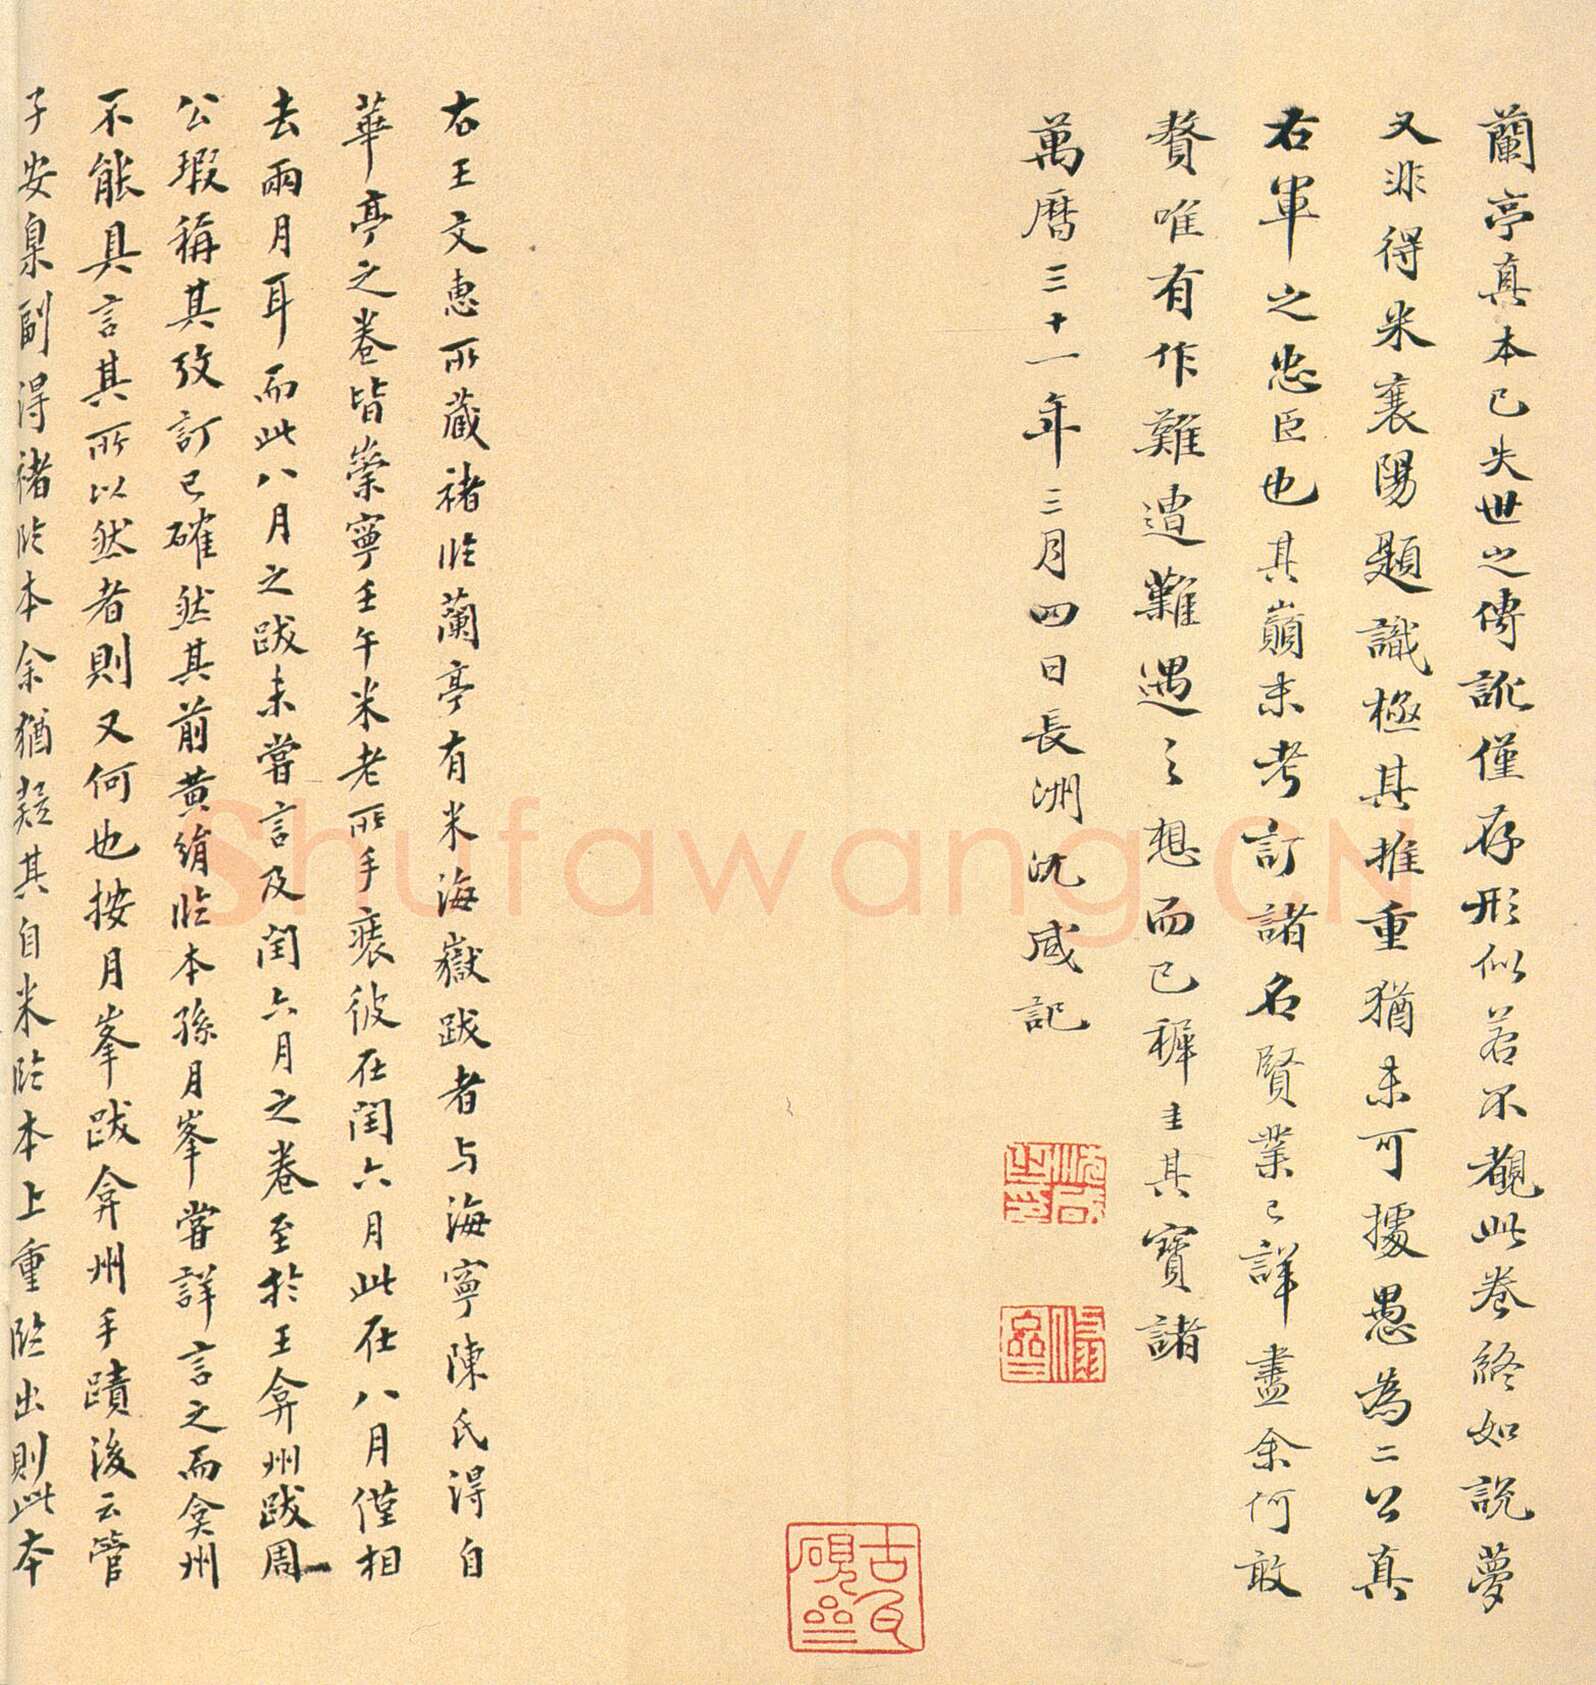 蘭亭真本已失世之傳訛僅存形似若不覩此卷終如說夢
又非得米襄陽題識極其推重猶未可據愚為二公真
右軍之忠臣也其巔末考訂諸名賢業已詳盡余何敢
贅唯有作難遭難遇之想而已穉圭其寶諸
萬曆三十一年三月四日長洲沈咸記
古瓦硯
右王文惠所藏褚臨蘭亭有米海嶽跋者与海寧陳氏得自
華亭之卷皆崇寧壬午米老所手褒彼在閏六月此在八月僅相
去兩月耳而此八月之跋未嘗言及閏六月之卷至於王弇州跋周
公瑕稱其攷訂已確然其前黄絹臨本孫月峯嘗詳言之而弇州
不能具言其所以然者則又何也按月峯跋弇州手蹟後云管
子安臬副得褚臨本余猶疑其自米臨本上重臨出則此本
Shufawang.CN